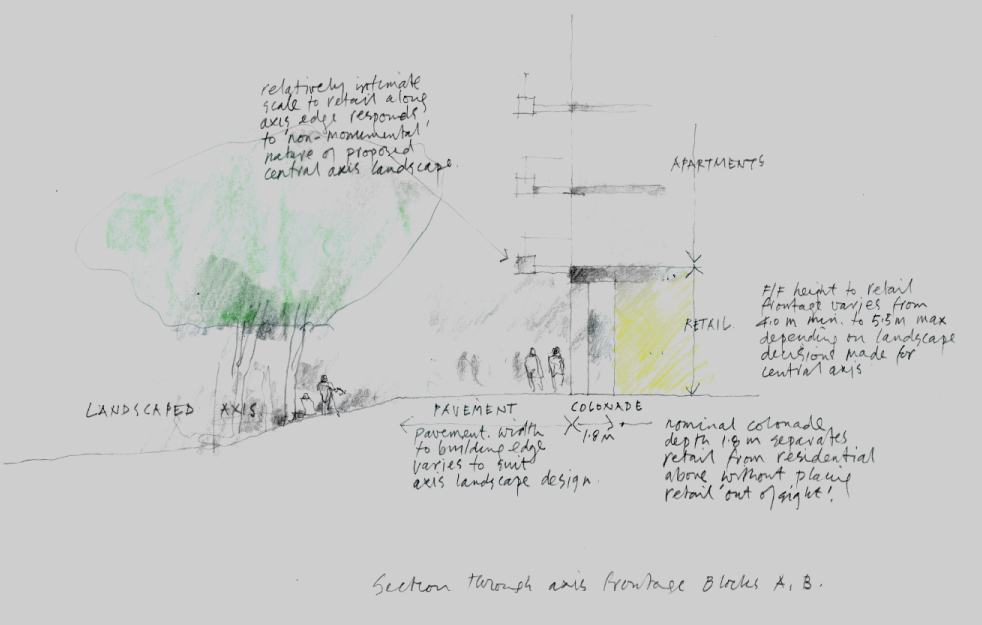 relatively intimate
scale to retail along
axis edge responds
to 'non-monumental'
nature of proposed
central axis landscape.
APARTMENTS
F/F height to retail
frontage varies from
4.0 m min. to 5.5 m max
depending on landscape
decisions made for
central axis
RETAIL.
LANDSCAPED AXIS.
PAVEMENT
COLONADE
1.8 m
pavement width
to building edge
varies to suit
axis landscape design.
nominal colonade
depth 1.8 m separates
retail from residential
above without placing
retail 'out of sight'.
Section through axis frontage Blocks A, B.